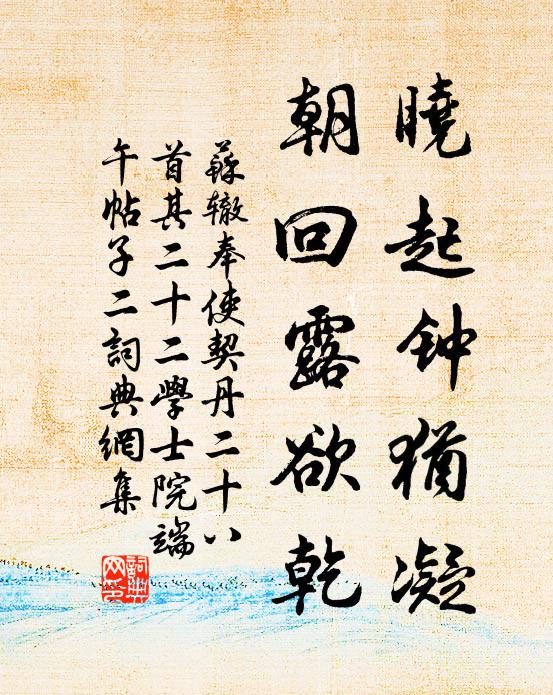 曉起钟猶凝
朝回露欲乾
蘇辙奉使契丹二十八
首其二十二學士院端
午帖子二詞典網集